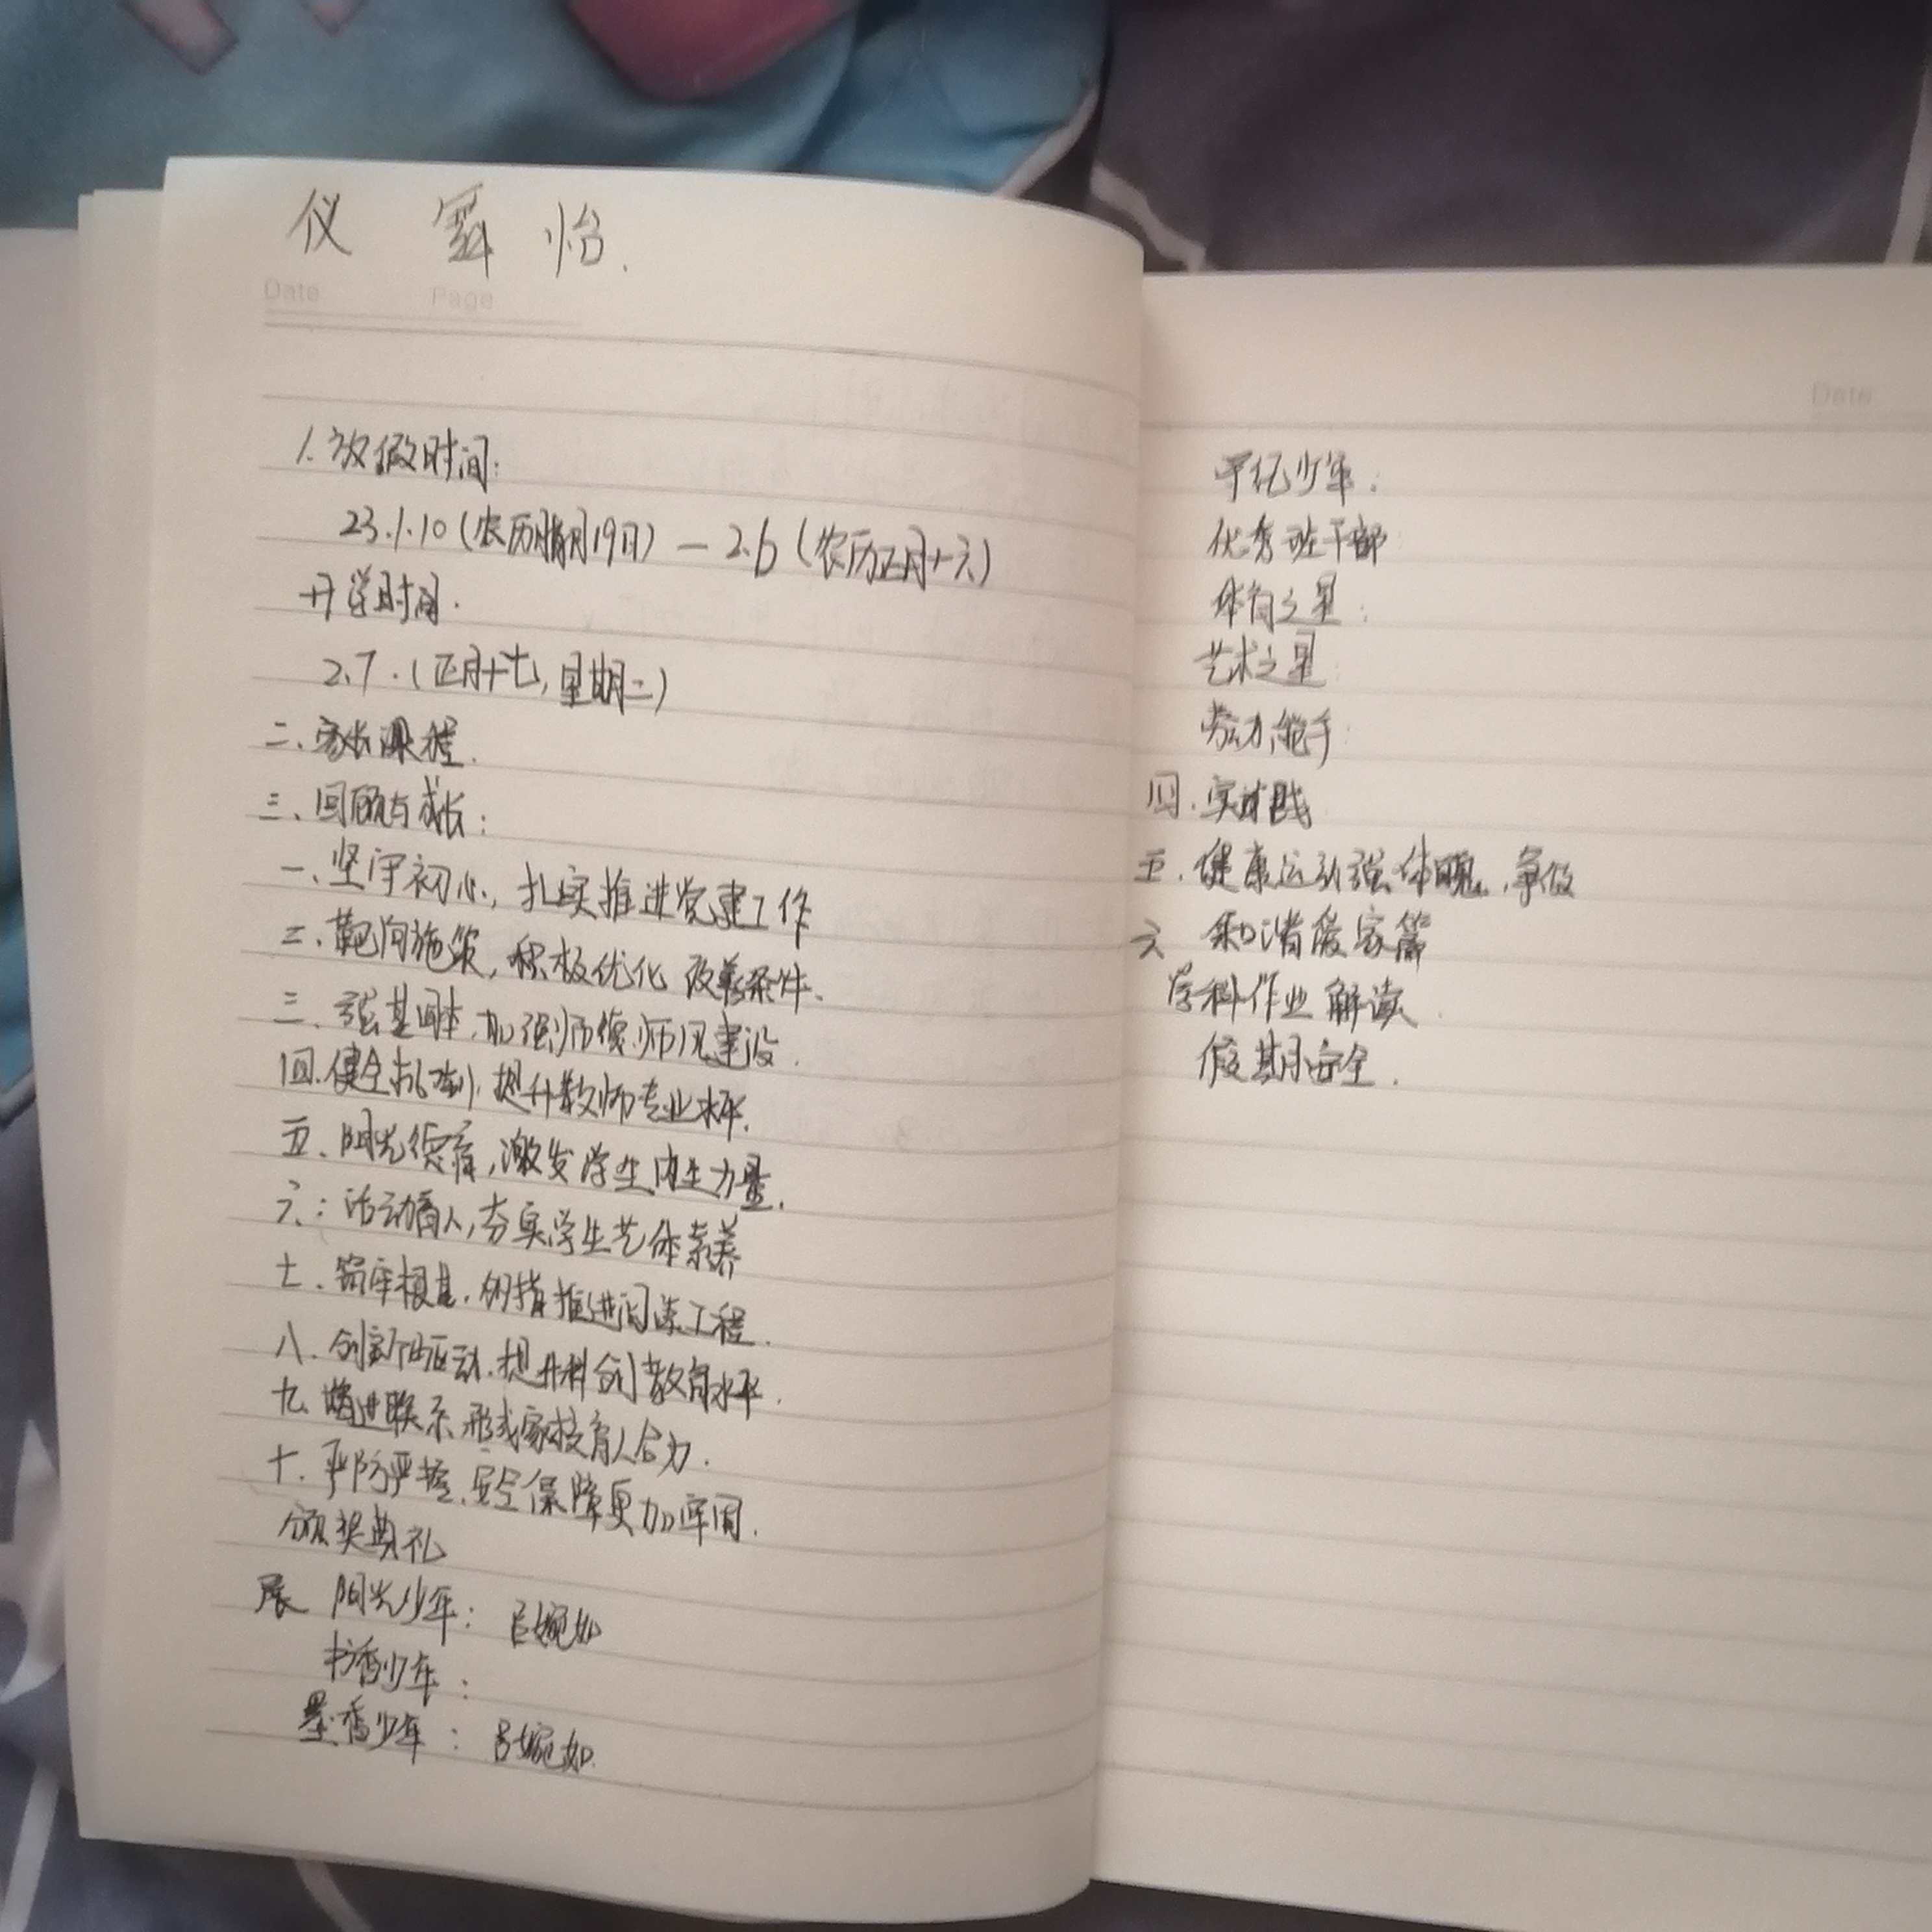 仪 霏怡.
Date Page
1.放假时间:
23.1.10(农历腊月19日)—2.6(农历正月十六)
开学时间.
2.7.(正月十七,星期二)
二、家长课程.
三、回顾与成长:
一、坚守初心,扎实推进党建工作
二、靶向施策,积极优化改善条件、
三、强基固本,加强师德师风建设.
四.健全机制,提升教师专业水平.
五、阳光德育,激发学生内生力量.
六:活动育人,夯实学生艺体素养
七、筑牢根基.精推进阅读工程.
八.创新驱动.提升科创教育水平.
九.增进联系形成家校育人合力.
十.严防严控.安全保障更加牢固.
颁奖典礼
展 阳光少年:吕婉如
书香少年:
墨香少年:吕婉如.
Date
守纪少年:
优秀班干部
体育之星:
艺术之星
劳动能手:
四.实践
五.健康运动强体魄.争做
六 和谐爱家篇
学科作业解读.
假期安全.